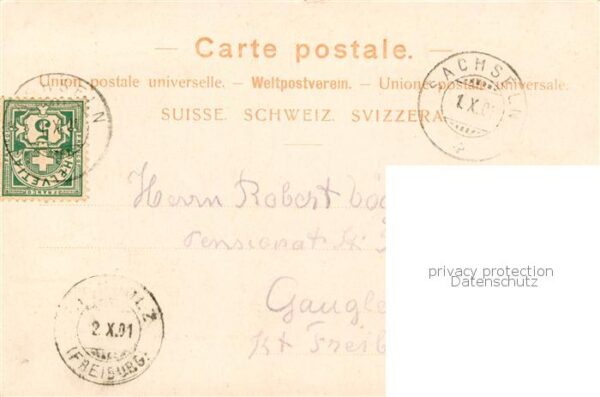 Carte postale.
Union postale universelle. — Weltpostverein. — Unione postale universale.
SUISSE. SCHWEIZ. SVIZZERA.
SACHSELN
1.X.01
ELN
5
HELVETIA
FRANCO
Herrn Robert
Pensionat St.
Gaugle
Kt Freib
2.X.01
(FREIBURG)
privacy protection
Datenschutz